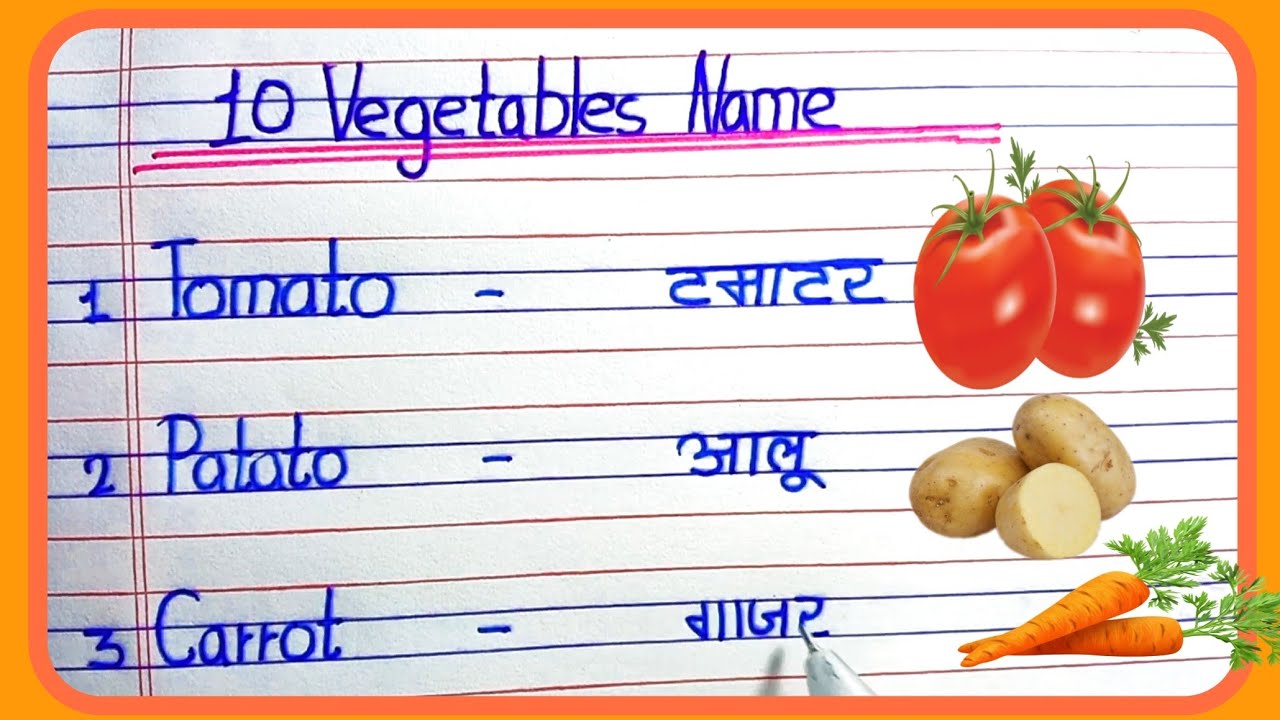 10 Vegetables Name
1 Tomato - टमाटर
2 Patato - आलू
3 Carrot - गाजर